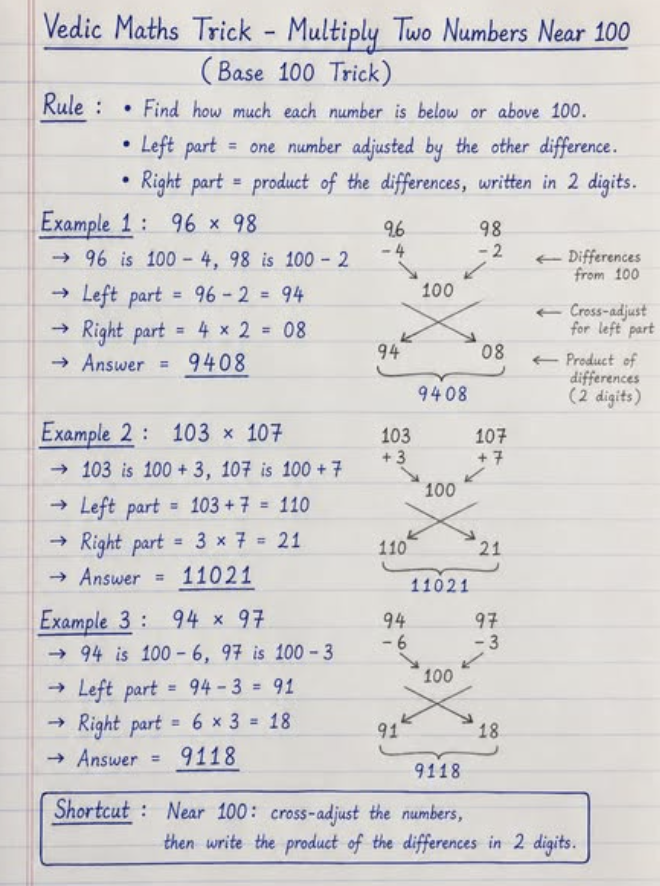 Vedic Maths Trick – Multiply Two Numbers Near 100
(Base 100 Trick)
Rule : • Find how much each number is below or above 100.
• Left part = one number adjusted by the other difference.
• Right part = product of the differences, written in 2 digits.
Example 1 : 96 × 98
→ 96 is 100 - 4, 98 is 100 - 2
→ Left part = 96 - 2 = 94
→ Right part = 4 × 2 = 08
→ Answer = 9408
96 98
-4 -2
← Differences
from 100
100
← Cross-adjust
for left part
94 08
← Product of
differences
(2 digits)
9408
Example 2 : 103 × 107
→ 103 is 100 + 3, 107 is 100 + 7
→ Left part = 103 + 7 = 110
→ Right part = 3 × 7 = 21
→ Answer = 11021
103 107
+3 +7
100
110 21
11021
Example 3 : 94 × 97
→ 94 is 100 - 6, 97 is 100 - 3
→ Left part = 94 - 3 = 91
→ Right part = 6 × 3 = 18
→ Answer = 9118
94 97
-6 -3
100
91 18
9118
Shortcut : Near 100: cross-adjust the numbers,
then write the product of the differences in 2 digits.